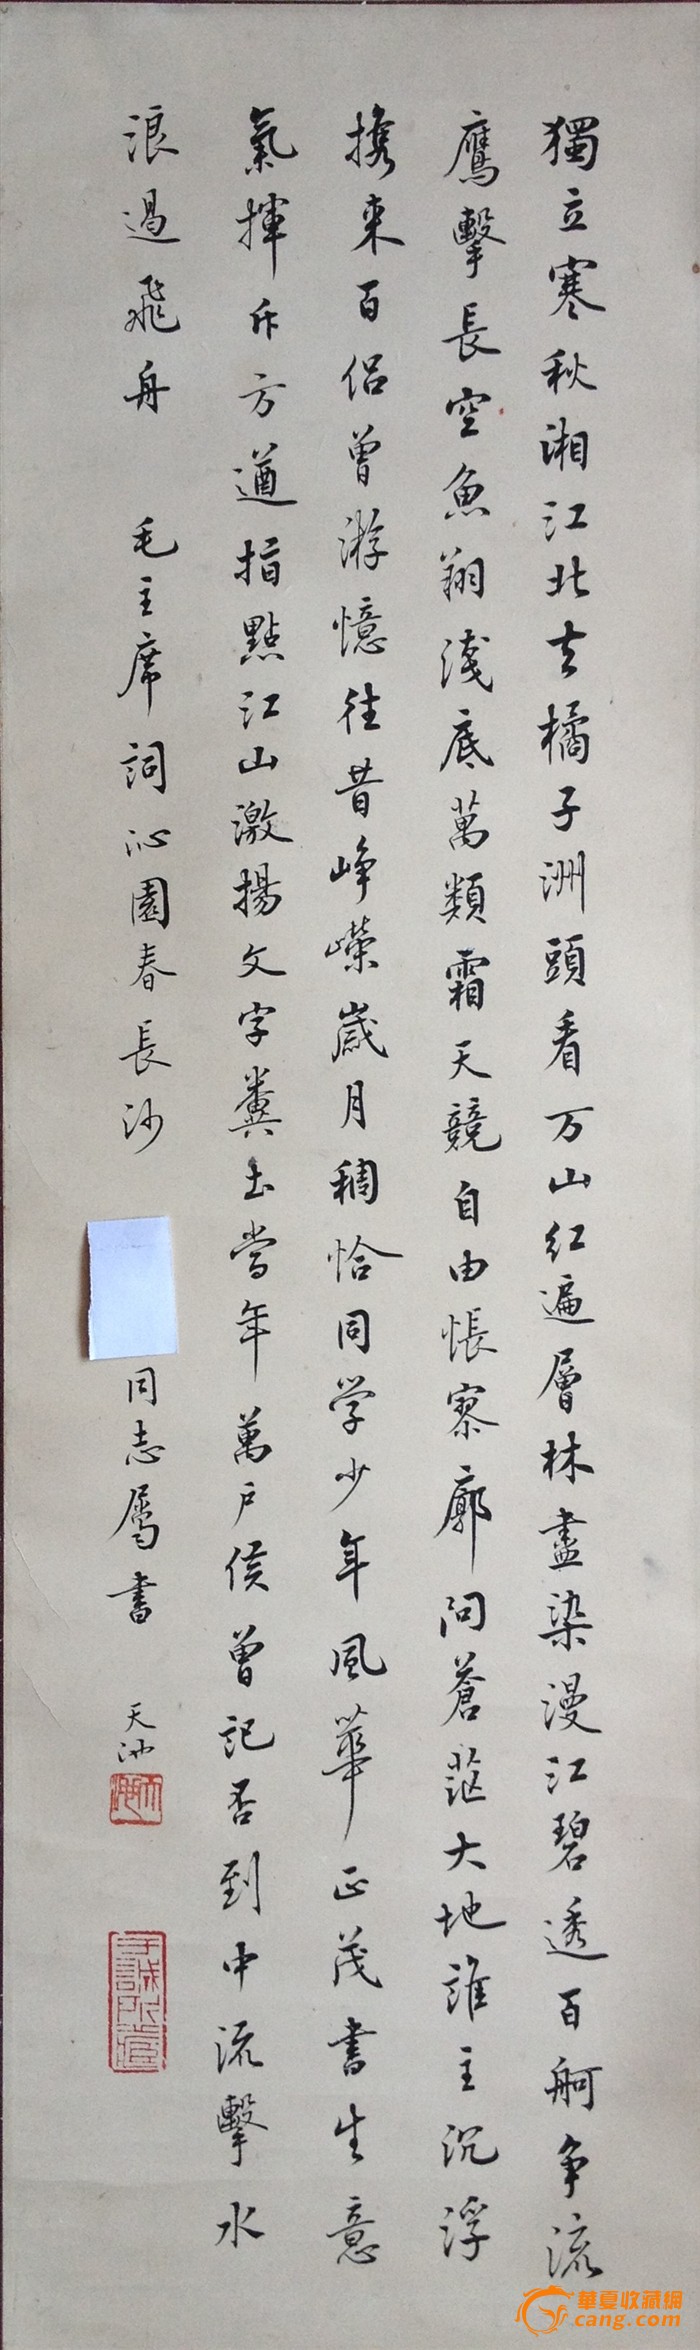 獨立寒秋湘江北去橘子洲頭看万山紅遍層林盡染漫江碧透百舸争流
鷹擊長空魚翔淺底萬類霜天競自由悵寥廓问蒼茫大地誰主沉浮
携来百侣曾游憶往昔峥嶸歲月稠恰同学少年風華正茂書生意
氣揮斥方遒指點江山激揚文字糞土當年萬户侯曾記否到中流擊水
浪遏飛舟 毛主席詞沁園春長沙 同志属書 天
華夏收藏網
cang.com